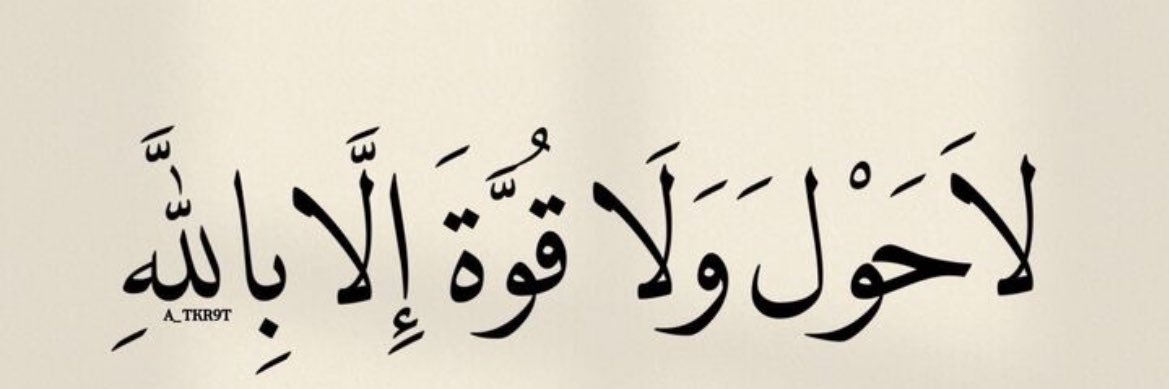 لَا حَوْلَ وَلَا قُوَّةَ إِلَّا بِاللَّهِ
A_TKR9T